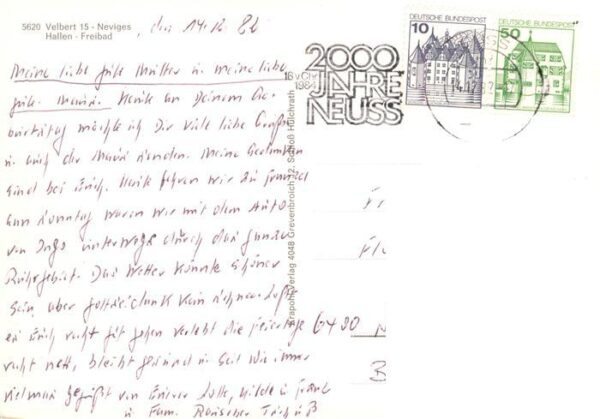 5620 Velbert 15 - Neviges
Hallen - Freibad
DEUTSCHE BUNDESPOST
10
DEUTSCHE BUNDESPOST
50
2000
JAHRE
NEUSS
16 v. Chr.
1984
Meine liebe gute Mutter u. meine liebe
gute Maria. Heute an Deinem Ge-
burtstag möchte ich Dir viele liebe Grüße
u. auch der Maria senden. Meine Gedanken
sind bei Euch. Heute fahren wir zu
am Sonntag waren wir mit dem Auto
von Ingo unterwegs durch das ganze
Ruhrgebiet. Das Wetter könnte schöner
sein, aber gottseidank kein
recht gut gehen verlebt die Feiertage
recht nett, bleibt gesund u. seid wie immer
vielmals gegrüßt von Eurer
u. Fam.
6490
Krapohl-Verlag 4048 Grevenbroich 12, Schloß Hülchrath